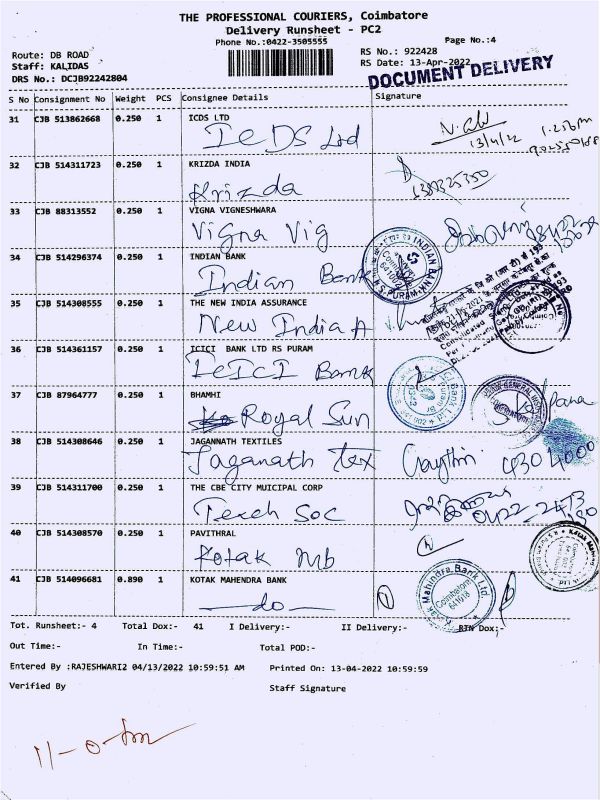 THE PROFESSIONAL COURIERS, Coimbatore
Delivery Runsheet - PC2
Phone No.:0422-3505555
Page No.:4
Route: DB ROAD
RS No.: 922428
Staff: KALIDAS
RS Date: 13-Apr-2022
DRS No.: DCJB92242804
DOCUMENT DELIVERY
S No Consignment No Weight PCS Consignee Details Signature
31 CJB 513862668 0.250 1 ICDS LTD
ICDS Ltd
13/4/22
32 CJB 514311723 0.250 1 KRIZDA INDIA
Krizda
33 CJB 88313552 0.250 1 VIGNA VIGNESHWARA
Vigna Vig
34 CJB 514296374 0.250 1 INDIAN BANK
Indian Bank
INDIAN BANK
R.S. PURAM
35 CJB 514308555 0.250 1 THE NEW INDIA ASSURANCE
New India A
36 CJB 514361157 0.250 1 ICICI BANK LTD RS PURAM
ICICI Bank
37 CJB 87964777 0.250 1 BHAMHI
Royal Sun
38 CJB 514308646 0.250 1 JAGANNATH TEXTILES
Jaganath Tex
39 CJB 514311700 0.250 1 THE CBE CITY MUICIPAL CORP
Tech Soc
40 CJB 514308570 0.250 1 PAVITHRAL
Kotak MB
41 CJB 514096681 0.890 1 KOTAK MAHENDRA BANK
do
Kotak Mahindra Bank Ltd.
Coimbatore
Tot. Runsheet:- 4 Total Dox:- 41 I Delivery:- II Delivery:- RTN Dox:-
Out Time:- In Time:- Total POD:-
Entered By :RAJESHWARI2 04/13/2022 10:59:51 AM Printed On: 13-04-2022 10:59:59
Verified By Staff Signature